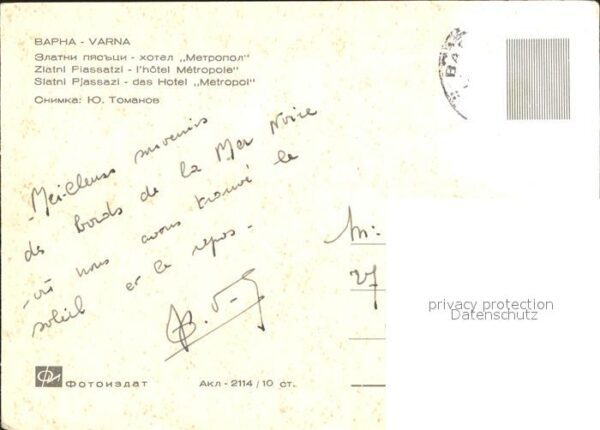 ВАРНА - VARNA
Златни пясъци - хотел „Метропол"
Zlatni Piassatzi - l'hôtel Métropole"
Slatni Pjassazi - das Hotel „Metropol"
Снимка: Ю. Томанов
Meilleurs souvenirs
des bords de la Mer Noire
où nous avons trouvé le
soleil et le repos -
M:
27
privacy protection
Datenschutz
Фотоиздат
Акл - 2114 / 10 ст.